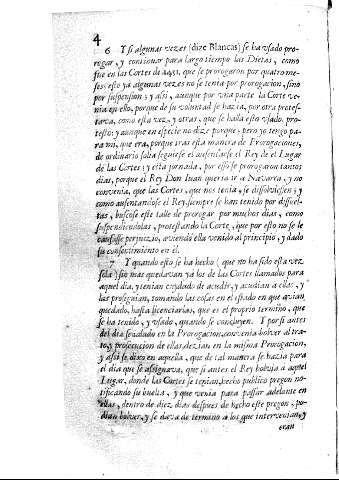 4
6 Y si algunas vezes (dize Blancas) se ha vsado pro-
rogar, y continuar para largo tiempo las Dietas, como
fue en las Cortes de 1451. que se prorogaron por quatro me-
ses; esto ya algunas vezes no se tenia por prorogacion, sino
por suspension; y assi, aunque por vna parte la Corte ve-
nia en ello, porque de su voluntad se hazia, por otra protes-
tava, como esta vez, y otras, que se halla esto vsado, pro-
testò: y aunque en especie no dize porque; pero yo tengo pa-
ra mi, que era, porque tras esta manera de Prorogaciones,
de ordinario solia seguirse el ausentarse el Rey de el Lugar
de las Cortes; y esta jornada, por esso se prorogaron tantos
dias, porque el Rey Don Iuan queria ir a Navarra, y no
convenia, que las Cortes, que nos tenia, se dissolviessen; y
como ausentandose el Rey, siempre se han tenido por dissuel-
tas, buscòse este talle de prorogar por muchos dias, como
suspendiendolas, protestando la Corte, que por esto no se le
causasse perjuyzio, aviendo ella venido al principio, y dado
su consentimiento en èl.
7 Y quando esto se ha hecho (que no ha sido esta vez
sola) sin mas quedavan ya los de las Cortes llamados para
aquel dia, y tenian cuydado de acudir, y acudian a ellas, y
las proseguian, tomando las cosas en el estado en que avian
quedado, hasta licenciarlas, que es el proprio termino, que
se ha tenido, y vsado, quando se concluyen. Y por si antes
del dia señalado en la Prorogacion, convenia bolver al tra-
to, y prosecucion de ellas, dezian en la misma Prorogacion,
y assi se dixo en aquella, que de tal manera se hazia para
el dia que se assignava, que si antes el Rey bolvia a aquel
Lugar, donde las Cortes se tenian, hecho publico pregon no-
tificando su buelta, y que venia para passar adelante en
ellas, dentro de diez dias despues de hecho este pregon, po-
dian bolver, y se dava de termino a los que intervenian, y
eran